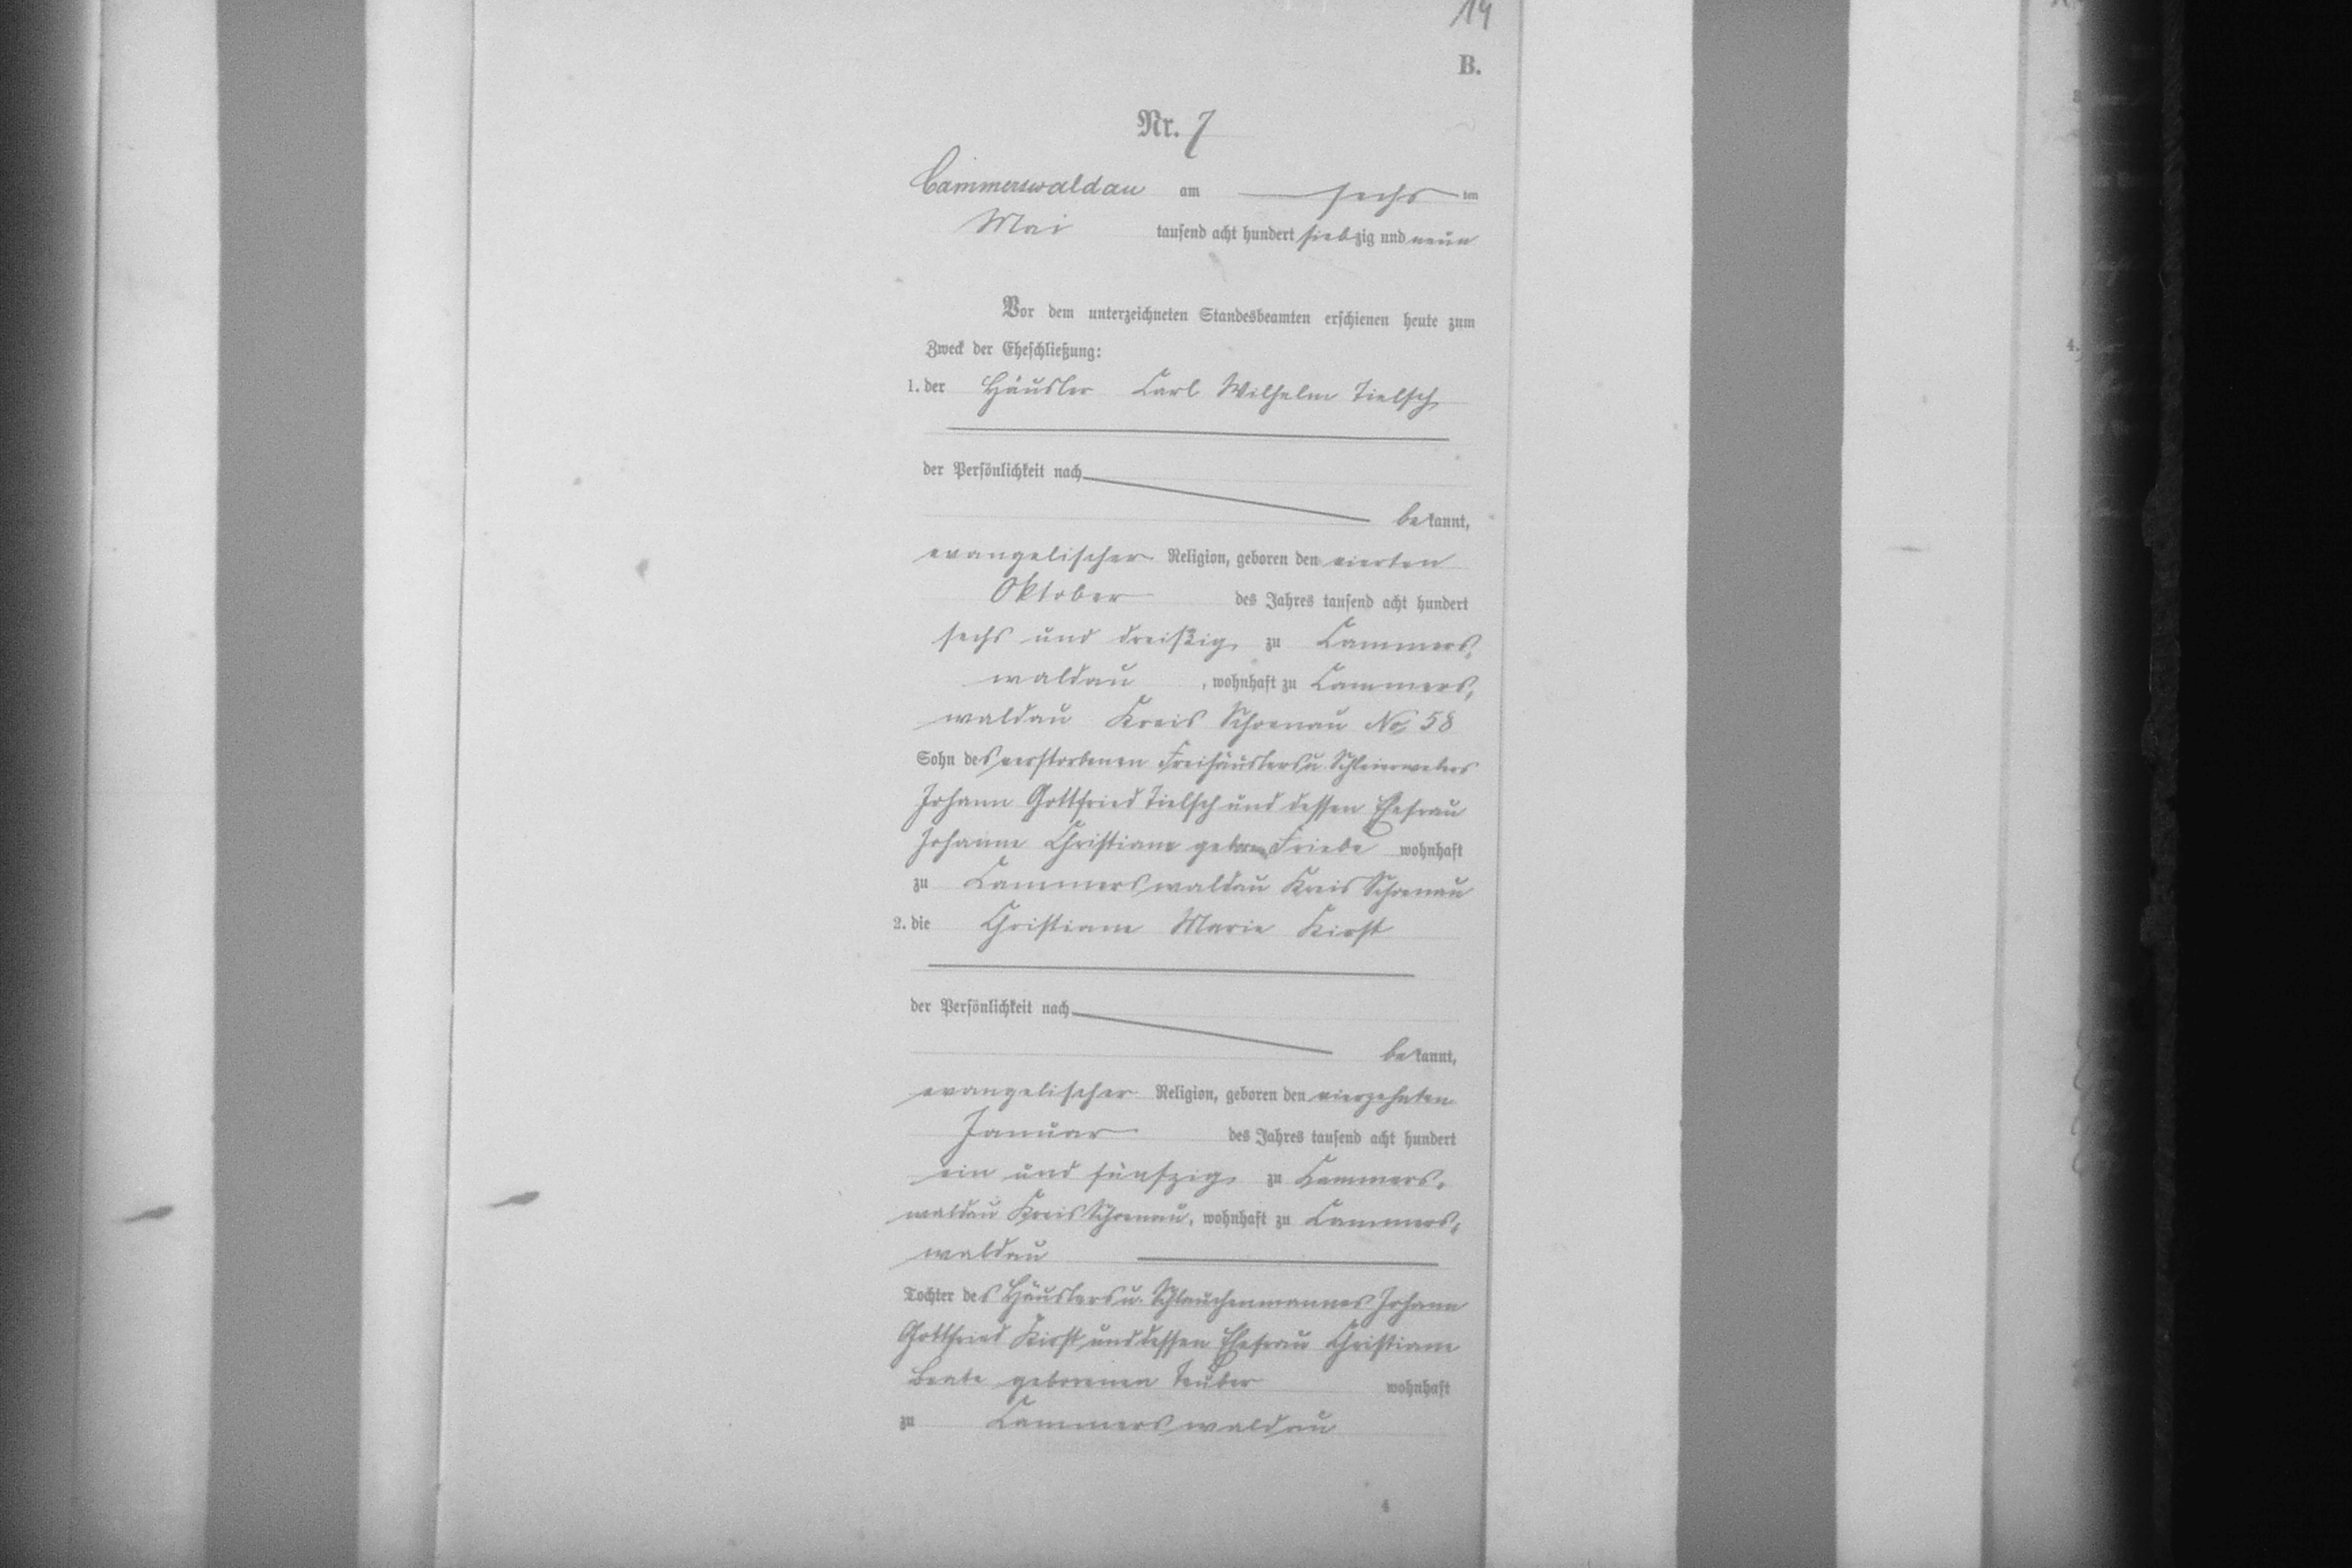 14
B.
Nr. 7
Cammerswaldau am sechs ten
Mai tausend acht hundert siebzig und neun
Vor dem unterzeichneten Standesbeamten erschienen heute zum
Zweck der Eheschließung:
1. der Häusler Carl Wilhelm Tielsch
der Persönlichkeit nach
bekannt,
evangelischer Religion, geboren den vierten
Oktober des Jahres tausend acht hundert
sechs und dreißig zu Cammers-
waldau, wohnhaft zu Cammers-
waldau Kreis Schoenau No 58
Sohn des verstorbenen Freihäuslers u. Schleierwebers
Johann Gottfried Tielsch und dessen Ehefrau
Johanne Christiane geborene Friebe wohnhaft
zu Cammerswaldau Kreis Schoenau
2. die Christiane Marie Kirst
der Persönlichkeit nach
bekannt,
evangelischer Religion, geboren den vierzehnten
Januar des Jahres tausend acht hundert
ein und fünfzig zu Cammers-
waldau Kreis Schoenau, wohnhaft zu Cammers-
waldau
Tochter des Häuslers u. Johann
Gottfried Kirst und dessen Ehefrau Christiane
Beate geborenen Teuber wohnhaft
zu Cammerswaldau
4
4.